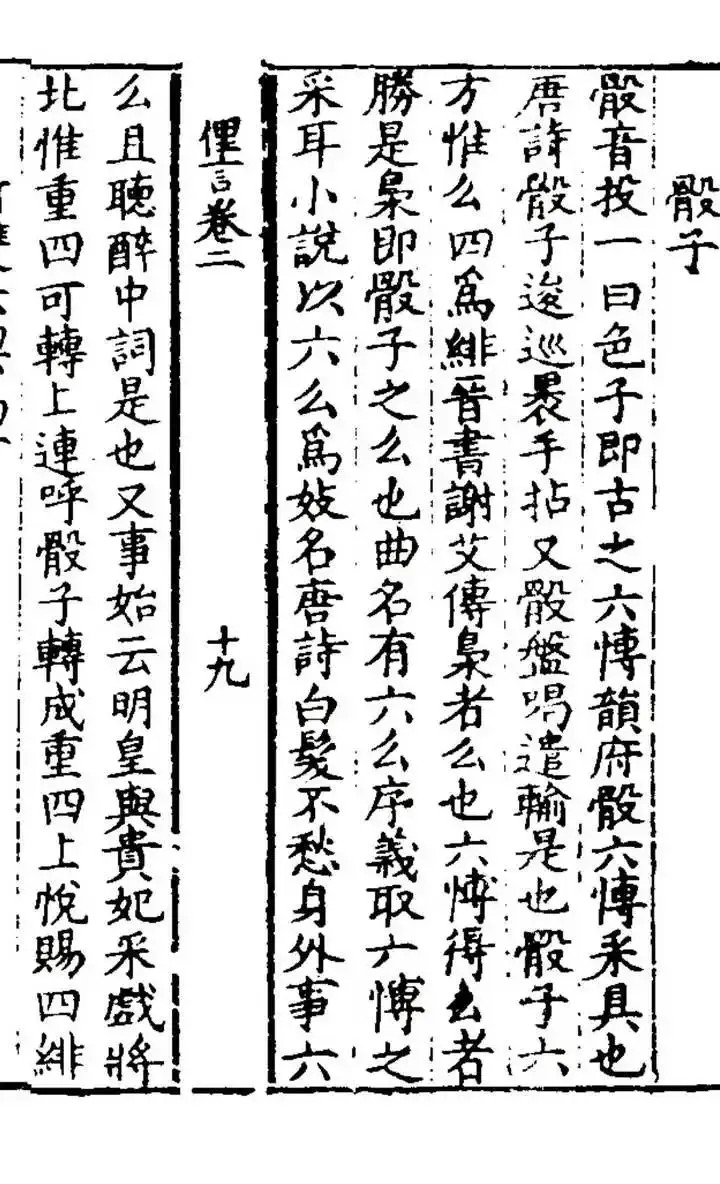 骰子
骰音投一曰色子即古之六愽韻府骰六愽采具也
唐詩骰子逡巡褁手拈又骰盤喝遣輸是也骰子六
方惟么四爲緋晉書謝艾傳梟者么也六愽得么者
勝是梟即骰子之么也曲名有六么序義取六愽之
采耳小說以六么爲妓名唐詩白髮不愁身外事六
俚言卷二
十九
么且聽醉中詞是也又事始云明皇與貴妃采戲將
北惟重四可轉上連呼骰子轉成重四上悅賜四緋